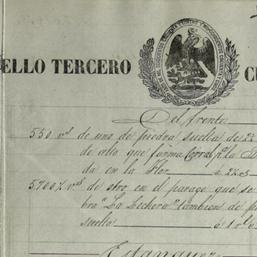 ELLO TERCERO
C
Del frente
550 v.s de una de piedra suelta de 22
de alto que forma Corral p.a la
da en la Flor
5700 de otro en el parage que se
bra "La Lechera" tambien de p
suelto
Estanques